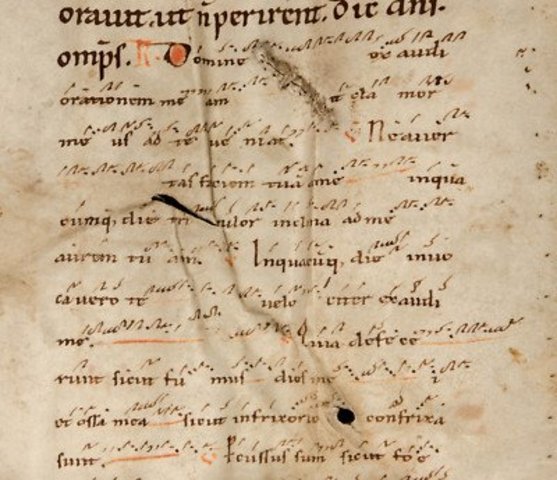 orauit. ut ñ perirent. dic dñi.
omp̄s. R Domine exaudi
orationem me am et cla mor
me us ad te ue niat. Ne auer
tas faciem tuā a me inqua
cumq; die tri bulor inclina ad me
aurem tu am. Inquacūq; die inuo
cauero te uelo citer exaudi
me. Quia defece
runt sicut fu mus dies mei
et ossa mea sicut infrixorio confrixa
sunt. Percussus sum sicut